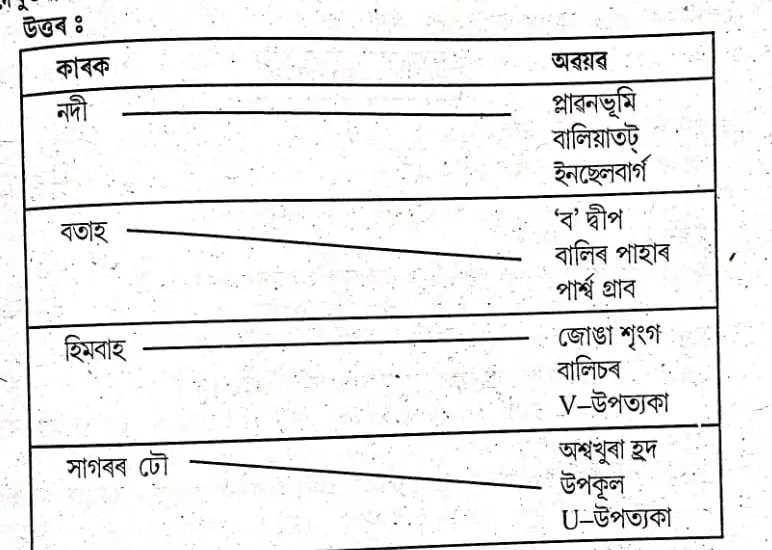 উত্তৰ ঃ
কাৰক অৱয়ৱ
নদী প্লাৱনভূমি
বালিয়াতট্
ইনছেলবাৰ্গ
বতাহ ‘ব’ দ্বীপ
বালিৰ পাহাৰ
পাৰ্শ্ব গ্ৰাব
হিমবাহ জোঙা শৃংগ
বালিচৰ
V–উপত্যকা
সাগৰৰ ঢৌ অশ্বখুৰা হ্ৰদ
উপকূল
U–উপত্যকা